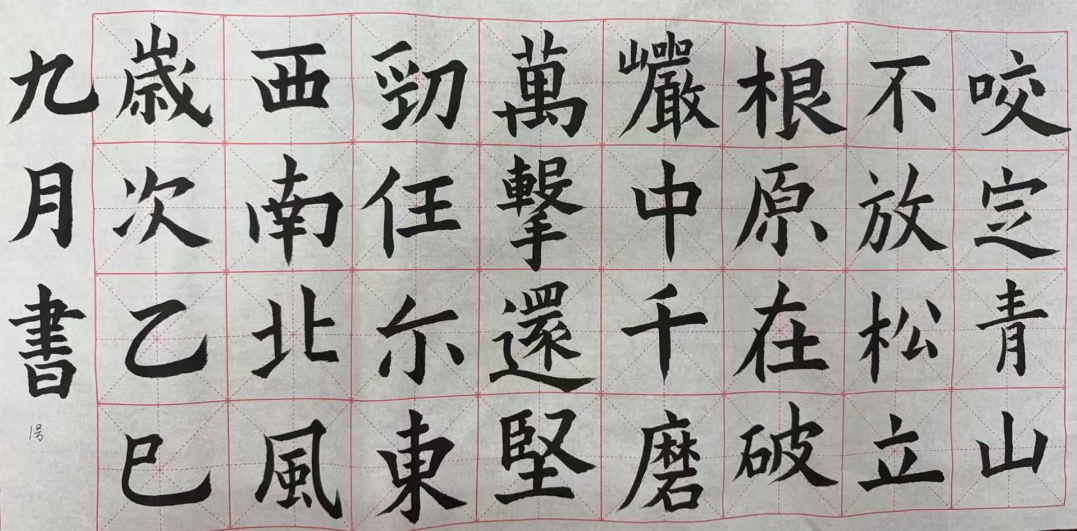 咬定青山
不放松立
根原在破
巖中千磨
萬擊還堅
勁任尓東
西南北風
歲次乙巳
九月書
1号